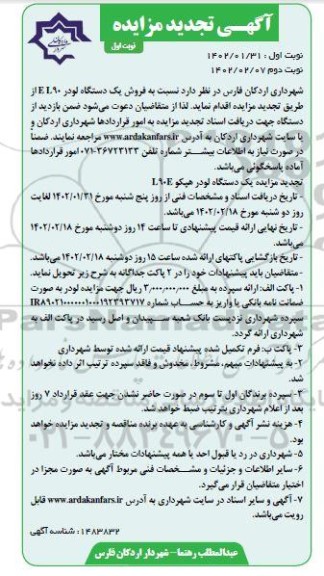 آگهـی تجدید مزایده
نوبت اول
نوبت اول : ۱۴۰۲/۰۱/۳۱
نوبت دوم ۱۴۰۲/۰۲/۰۷
شهرداری اردکان فارس در نظر دارد نسبت به فروش یک دستگاه لودر E L90 از
طریق تجدید مزایده اقدام نماید. لذا از متقاضیان دعوت می‌شود ضمن بازدید از
دستگاه جهت دریافت اسناد تجدید مزایده به امور قراردادها شهرداری اردکان و
یا سایت شهرداری اردکان به آدرس www.ardakanfars.ir مراجعه نمایند. ضمناً
در صورت نیاز به اطلاعات بیشـتر شماره تلفن ۳۶۷۲۳۱۳۳-۰۷۱ امور قراردادها
آماده پاسخگوئی می‌باشد.
تجدید مزایده یک دستگاه لودر هپکو L90E
- تاریخ دریافت اسناد و مشخصات فنی از روز پنج شنبه مورخ ۱۴۰۲/۰۱/۳۱ لغایت
روز دو شنبه مورخ ۱۴۰۲/۰۲/۱۸ می‌باشد.
- تاریخ نهایی ارائه قیمت پیشنهادی تا ساعت ۱۴ روز دوشنبه مورخ ۱۴۰۲/۰۲/۱۸
می‌باشد.
- تاریخ بازگشایی پاکتهای ارائه شده ساعت ۱۵ روز دوشنبه ۱۴۰۲/۰۲/۱۸ می‌باشد.
- متقاضیان باید پیشنهادات خود را در ۲ پاکت جداگانه به شرح زیر تحویل نماید.
۱- پاکت الف: ارائه سپرده به مبلغ ۳,۰۰۰,۰۰۰,۰۰۰ ریال جهت مزایده لودر به صورت
ضمانت نامه بانکی یا واریز به حساب شماره
سپرده شهرداری نزدپست بانک شعبه سـپیدان و اصل رسید در پاکت الف به
شهرداری ارائه گردد.
۲- پاکت ب: فرم تکمیل شده پیشنهاد قیمت ارائه شده توسط شهرداری
- به پیشنهادات مبهم، مشروط، مخدوش و فاقد سپرده ترتیب اثر داده نخواهد
شد.
۳- سپرده برندگان اول تا سوم در صورت حاضر نشدن جهت عقد قرارداد ۷ روز
بعد از اعلام شهرداری بترتیب ضبط خواهد شد.
۴- هزینه نشر آگهی و کارشناسی به عهده برنده مناقصه و تجدید مزایده خواهد
بود.
۵- شهرداری در رد یا قبول احد یا همه پیشنهادات مختار می‌باشد.
۶- سایر اطلاعات و جزئیات و مشـخصات فنی مربوط آگهی به صورت مجزا در
اختیار متقاضیان قرار می‌گیرد.
۷- آگهی و سایر اسناد در سایت شهرداری به آدرس www.ardakanfars.ir قابل
رویت می‌باشد.
شناسه آگهی : ۱۴۸۳۸۳۲
عبدالمطلب رهنما – شهردار اردکان فارس
ParsNamadData
۰۲۱-۸۸۳۴۹۶۷۰-۵